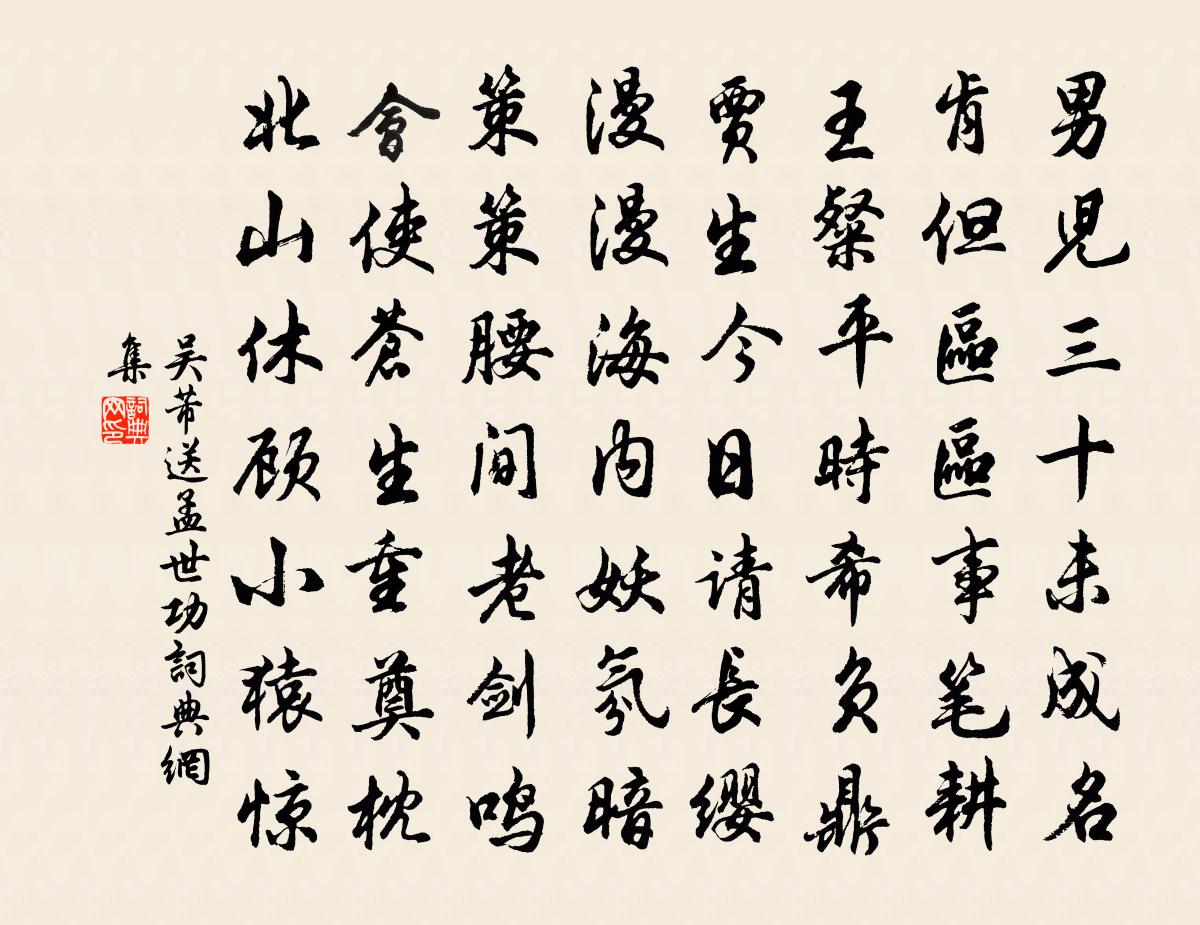 男児三十未成名
肯但區區事笔耕
王粲平時希负鼎
贾生今日请長缨
漫漫海内妖氛暗
策策腰间老剑鸣
會使蒼生重奠枕
北山休顾小猿惊
吴芾送孟世功詞典網
集
詞典网印